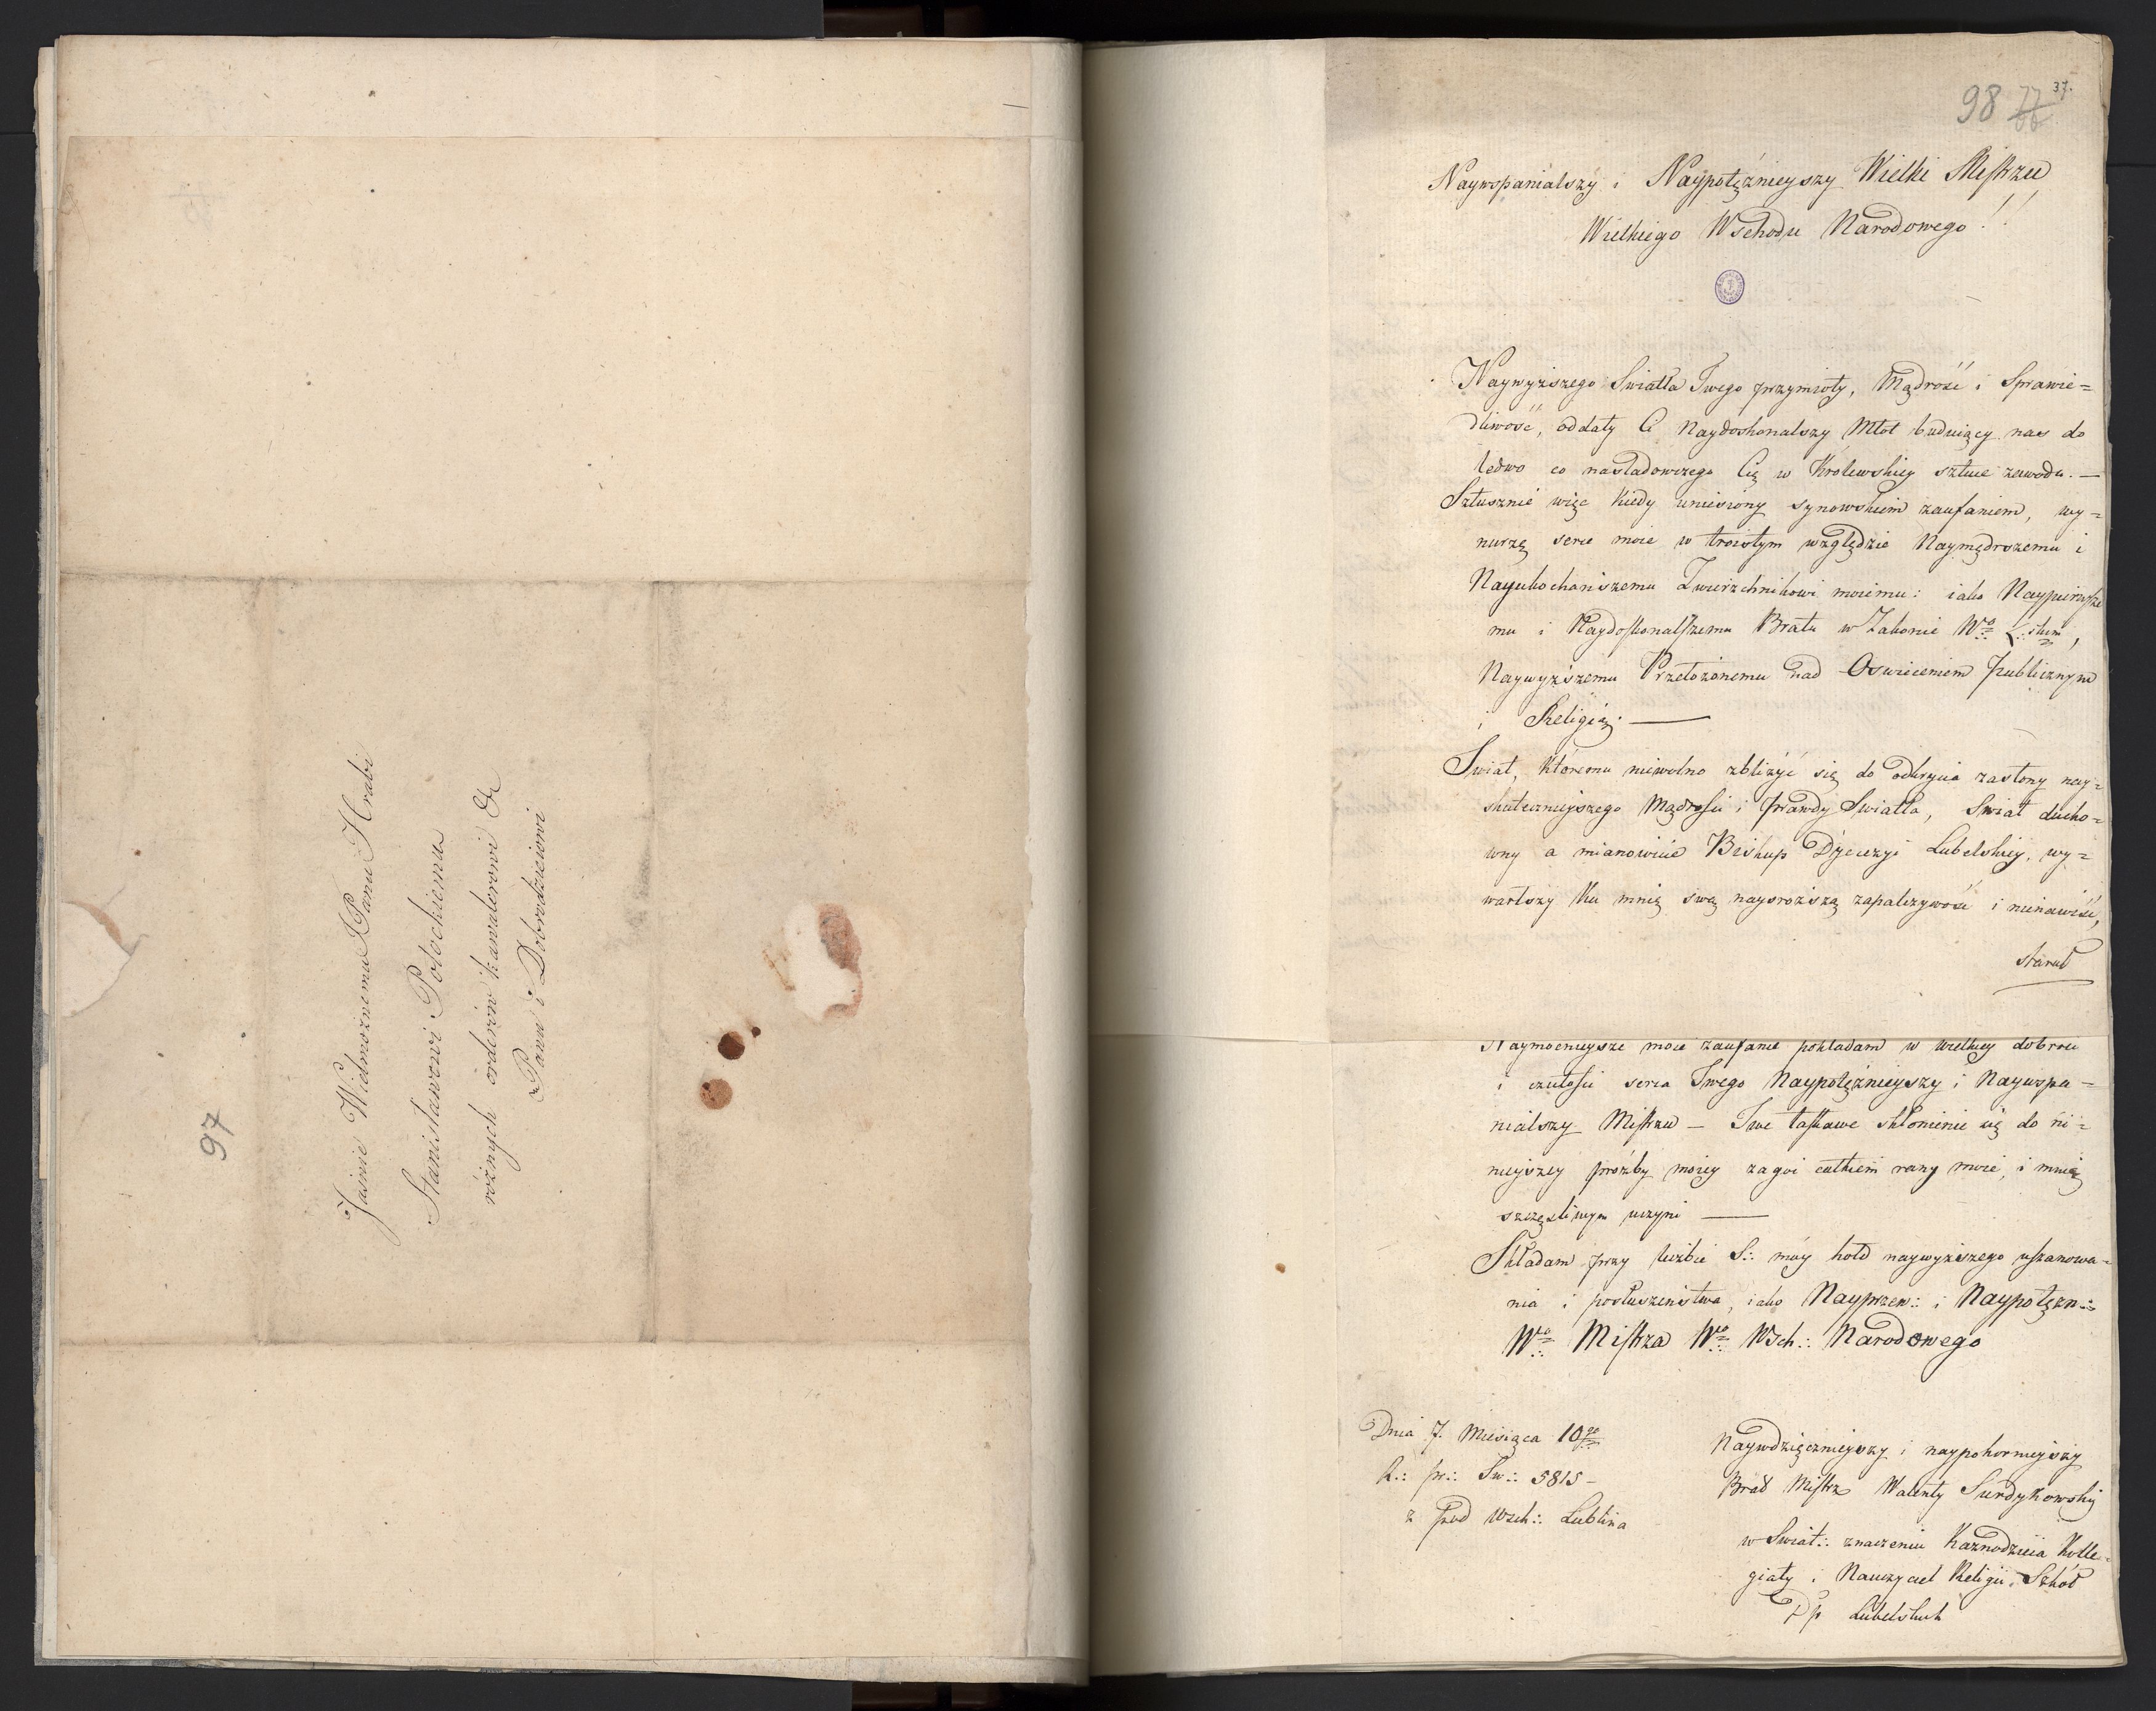 97
Jaśnie Wielmożnemu JPanu Hrabi
Stanisławowi Potockiemu
różnych orderów kawalerowi &
Panu i Dobrodziejowi
98
37.
Naywspanialszy i Naypotężnieyszy Wielki Mistrzu
Wielkiego Wschodu Narodowego!!
Naywyższego Swiatła Twego przymioty, Mądrość i Sprawie=
dliwość, oddały Ci Naydoskonalszy Młot buduiący nas do
ledwo co nasladowczego Cię w Krolewskiey sztuce zawodu. —
Sztusznie więc kiedy uniesiony synowskiem zaufaniem, wy=
nurzę serce moie w troistym względzie Naymędrszemu i
Nayukochanszemu Zwierzchnikowi moiemu: iako Naypierwsze
mu i Naydoskonalszemu Bratu w Zakonie Wo
Naywyższemu Przełożonemu nad Oswieceniem Publicznym
i Religią: —
Swiat, któremu niewolno zbliżyć się do odkrycia zasłony nay=
skutecznieyszego Mądrości i Prawdy Swiatła, Swiat ducho=
wny a mianowicie Biskup Dyecezyi Lubelskiey, wy=
warłszy ku mnię swą naysroższą zapalczywość i nienawiść,
starał
Naymocnieysze moie zaufanie pokładam w wielkiey dobroci
i czułości serca Twego Naypotężnieyszy i Naywspa=
nialszy Mistrzu — Twe łaskawe skłonienie się do ni=
nieyszey prożby moiey zagoi całkiem rany moie, i mnię
szczęsliwym uczyni —
Składam przy liczbie S∴ móy hołd naywyższego uszanowa=
nia i posłuszeństwa, iako Nayprzew∴ i Naypotężn∴
Wo∴ Mistrza Wo∴ Wsch∴ Narodowego
Dnia 7. Miesiąca 10go
R∴ pr∴ Sw∴ 5815 —
z pod Wsch∴ Lublina
Naywdzięcznieyszy i naypokornieyszy
Brat Mistrz Walenty Surdykowski
w Swiat∴ znaczeniu Kaznodzieia Kolle=
giaty i Nauczyciel Religii Szkół
Dp Lubelskich